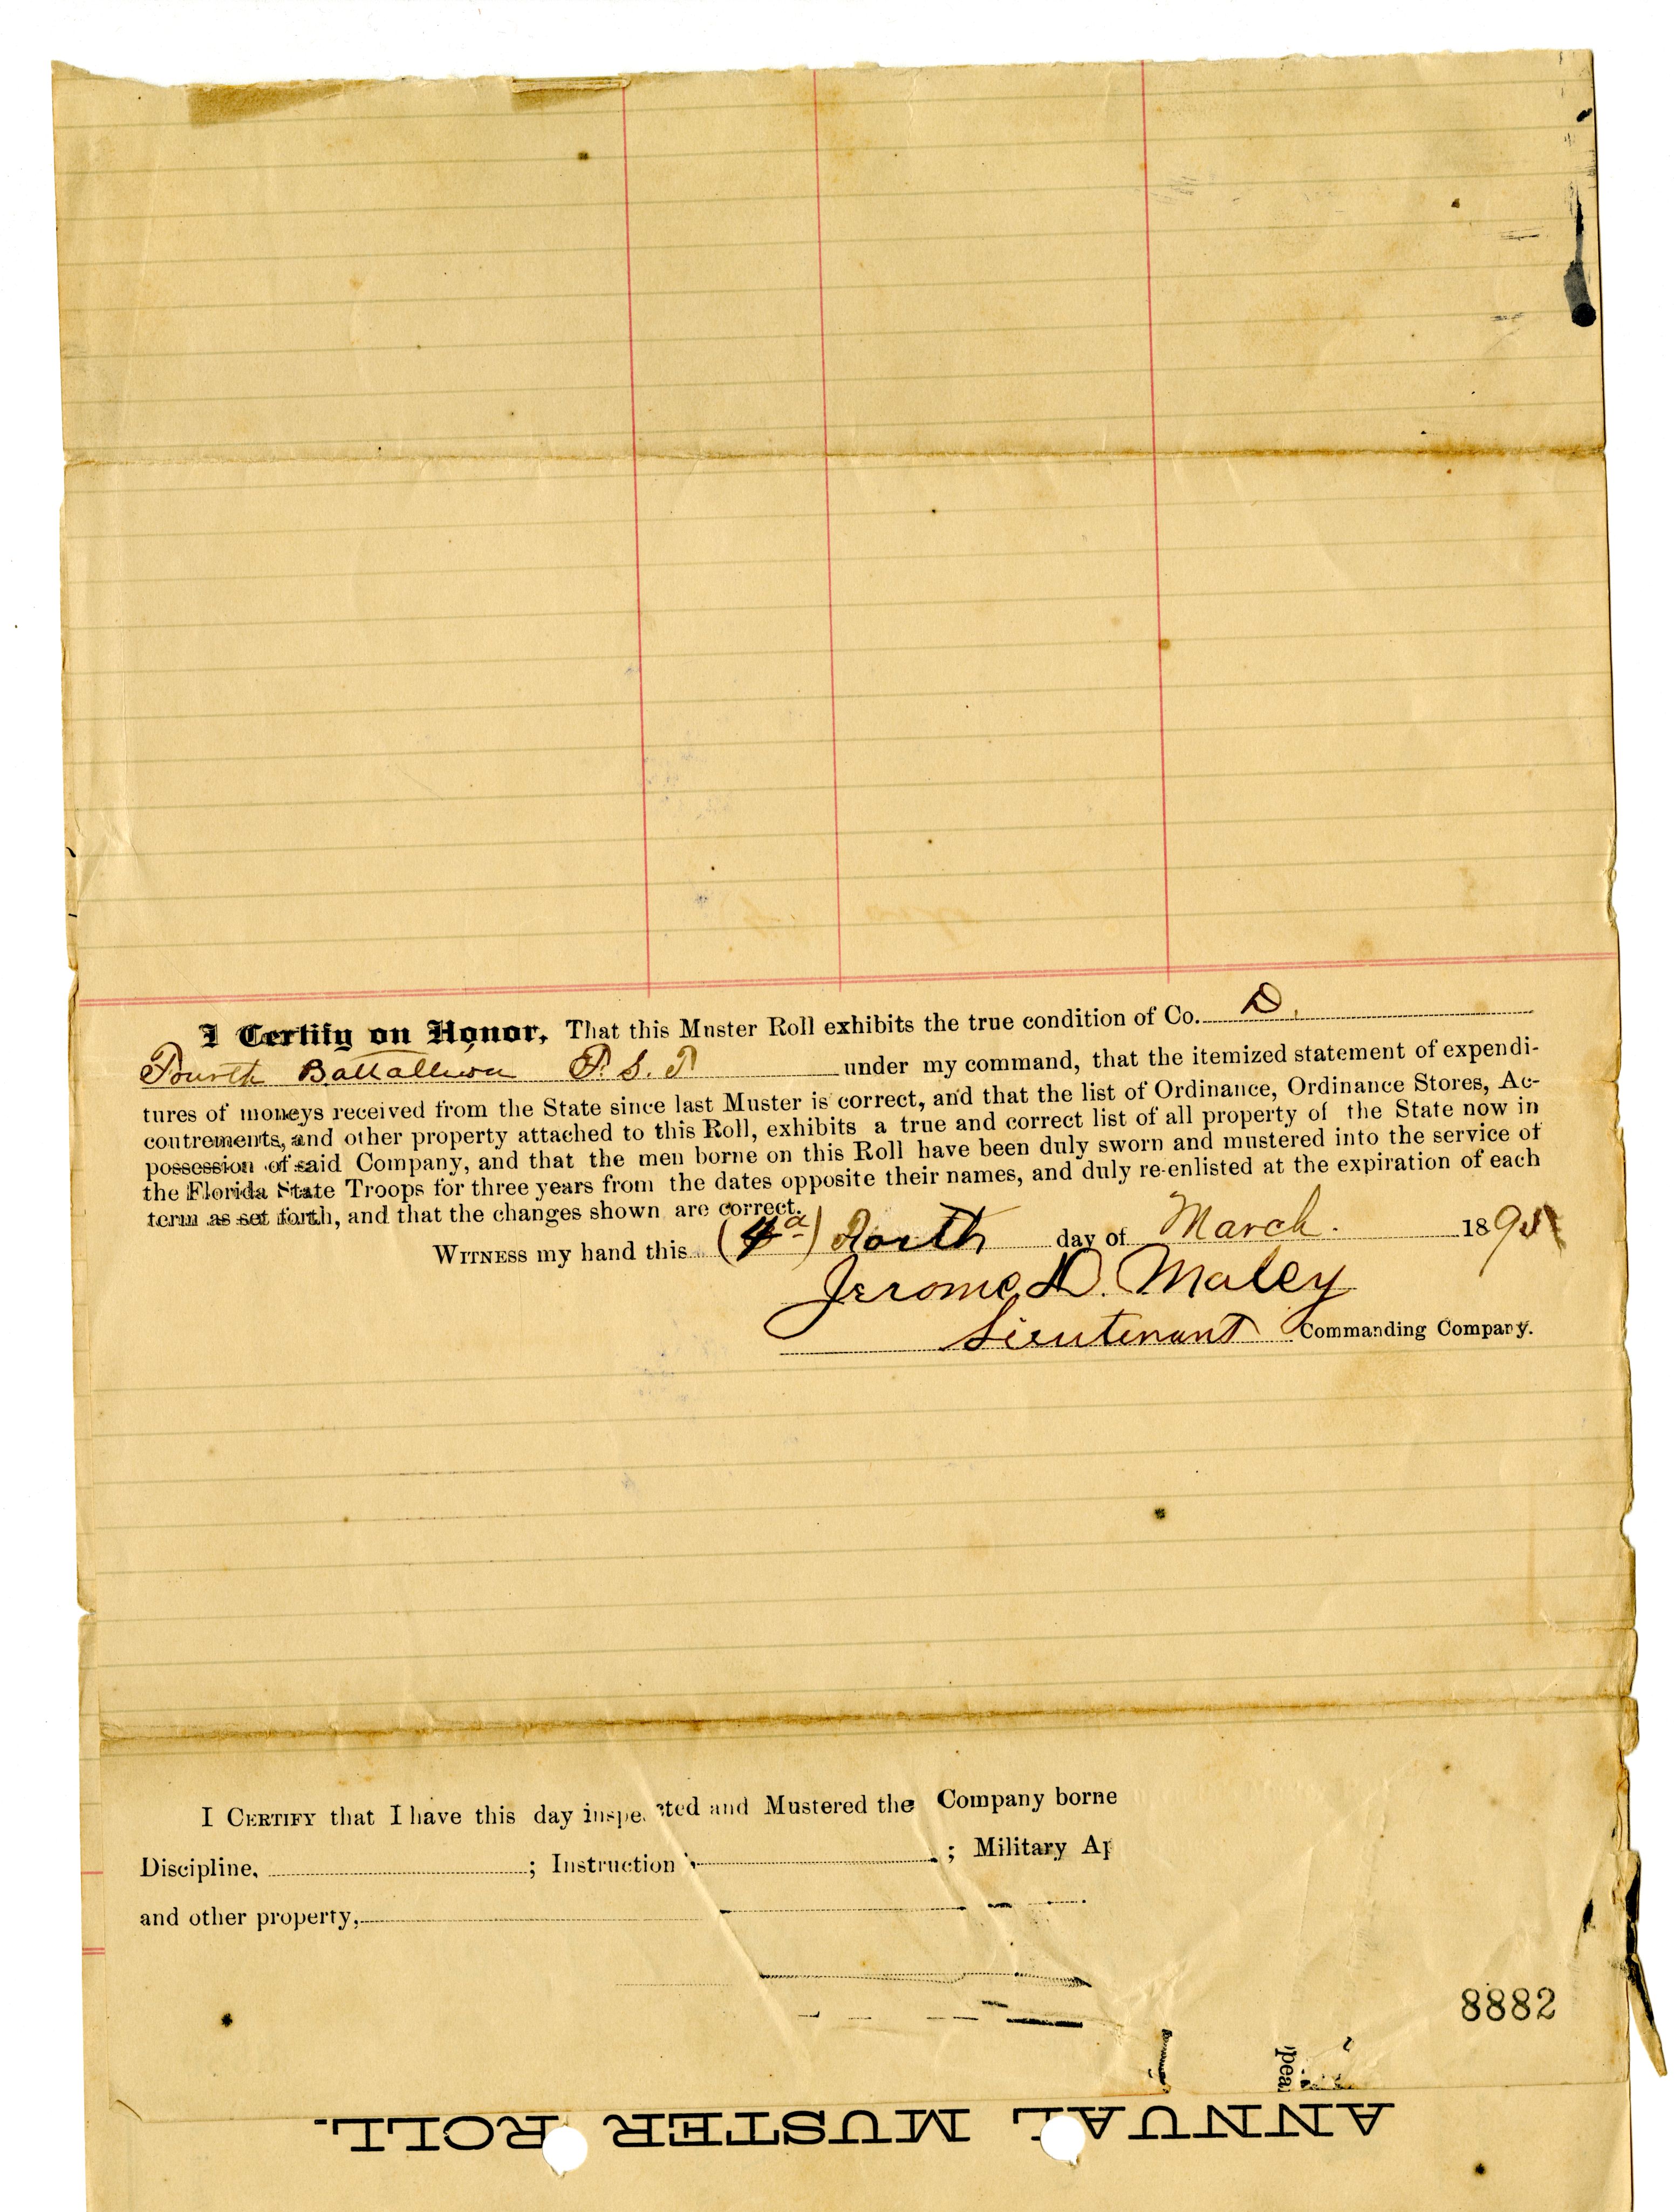 I Certify on Honor, That this Muster Roll exhibits the true condition of Co. D.
Fourth Battallion F. S. T under my command, that the itemized statement of expendi-
tures of moneys received from the State since last Muster is correct, and that the list of Ordinance, Ordinance Stores, Ac-
coutrements, and other property attached to this Roll, exhibits a true and correct list of all property of the State now in
possession of said Company, and that the men borne on this Roll have been duly sworn and mustered into the service of
the Florida State Troops for three years from the dates opposite their names, and duly re-enlisted at the expiration of each
term as set forth, and that the changes shown are correct.
WITNESS my hand this (4th) day of March. 189
Jerome D. Maley
Lieutenant Commanding Company.
I CERTIFY that I have this day inspected and Mustered the Company borne
Discipline, ; Instruction ; Military Ap
and other property,
8882
pea
ANNUAL MUSTER ROLL.